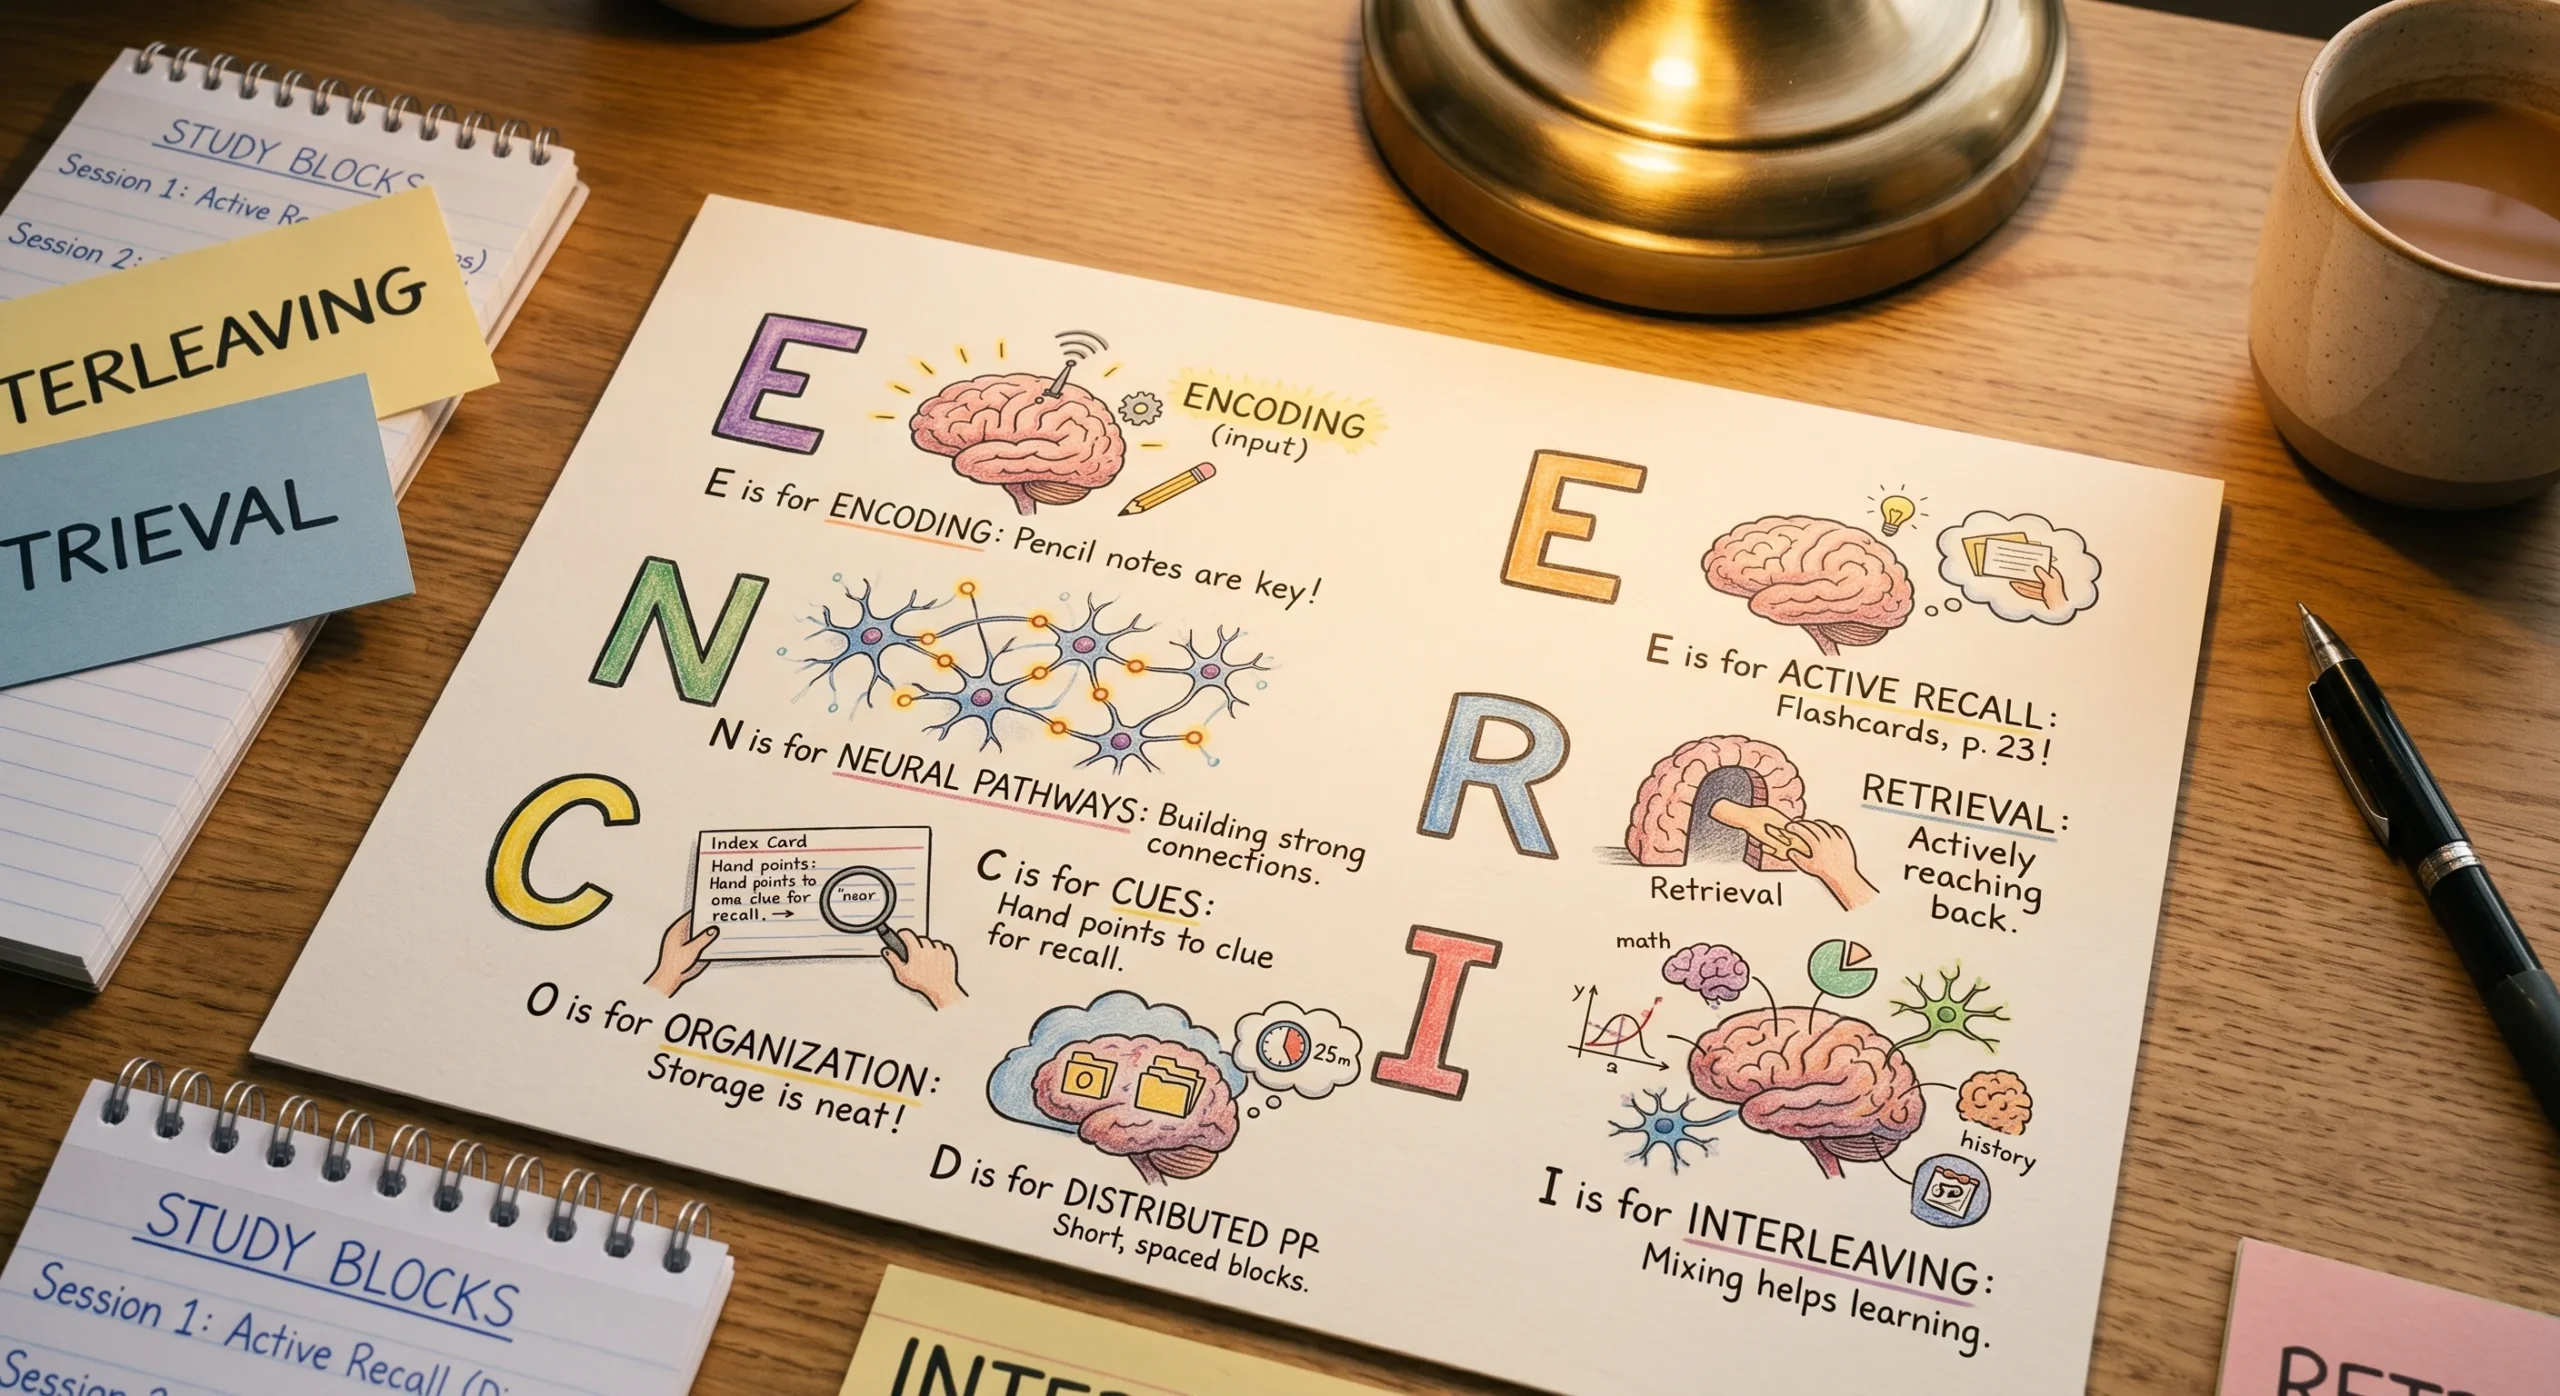 STUDY BLOCKS
Session 1: Active
Session 2:
TERLEAVING
TRIEVAL
E
ENCODING
(input)
E is for ENCODING: Pencil notes are key!
N
N is for NEURAL PATHWAYS: Building strong
connections.
C
Index Card
Hand points:
Hand points to
oma clue for
recall. →
"near
C is for CUES:
Hand points to clue
for recall.
O is for ORGANIZATION:
Storage is neat!
O
25m
D is for DISTRIBUTED PR
Short, spaced blocks.
E
E is for ACTIVE RECALL:
Flashcards, p. 23!
R
Retrieval
RETRIEVAL:
Actively
reaching
back.
I
math
y
a
history
I is for INTERLEAVING:
Mixing helps learning.
STUDY BLOCKS
Session 1: Active Recall
Session
INTE
RET